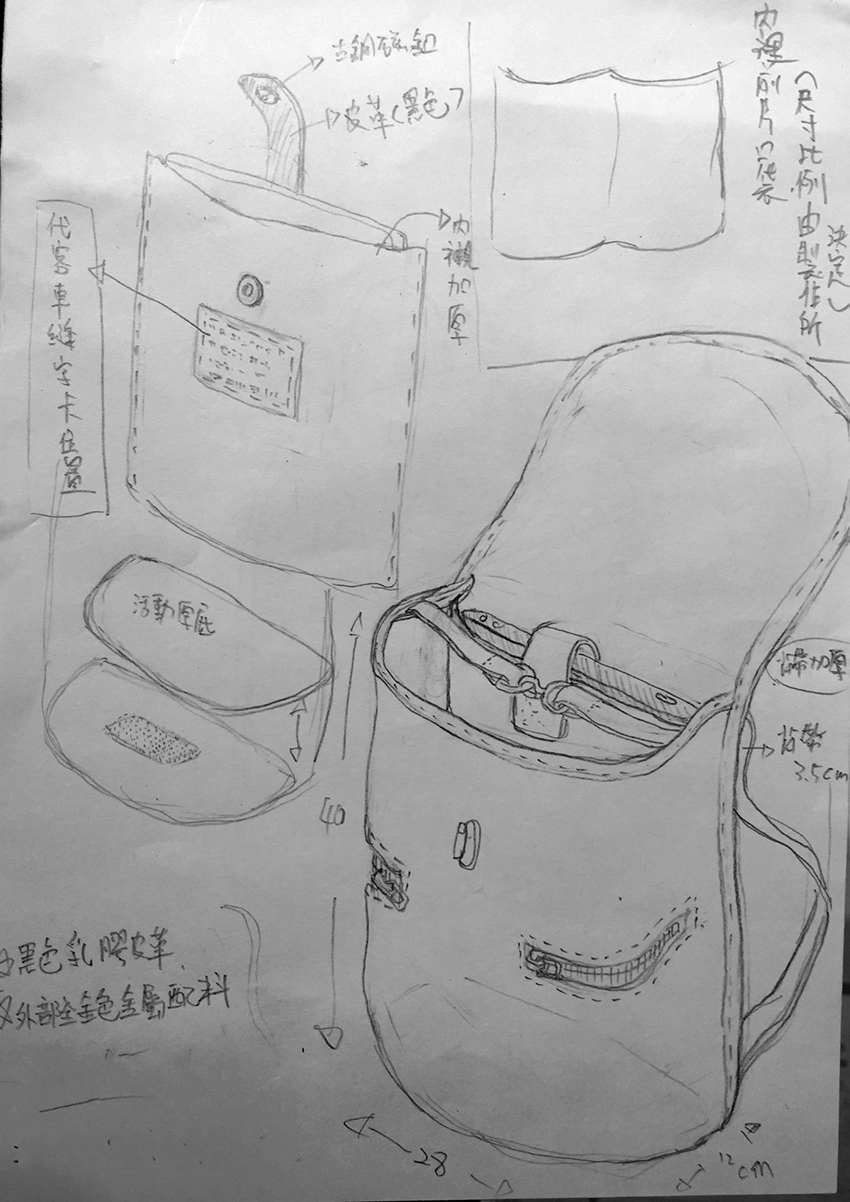 內裡前片口袋
(尺寸比例由製作所
決定)
古銅磁釦
皮革(黑色)
內襯加厚
代客車縫字卡位置
活動厚底
背帶加厚
背帶
3.5cm
40
黑色乳膠皮革
外部全金色金屬配料
28
12cm